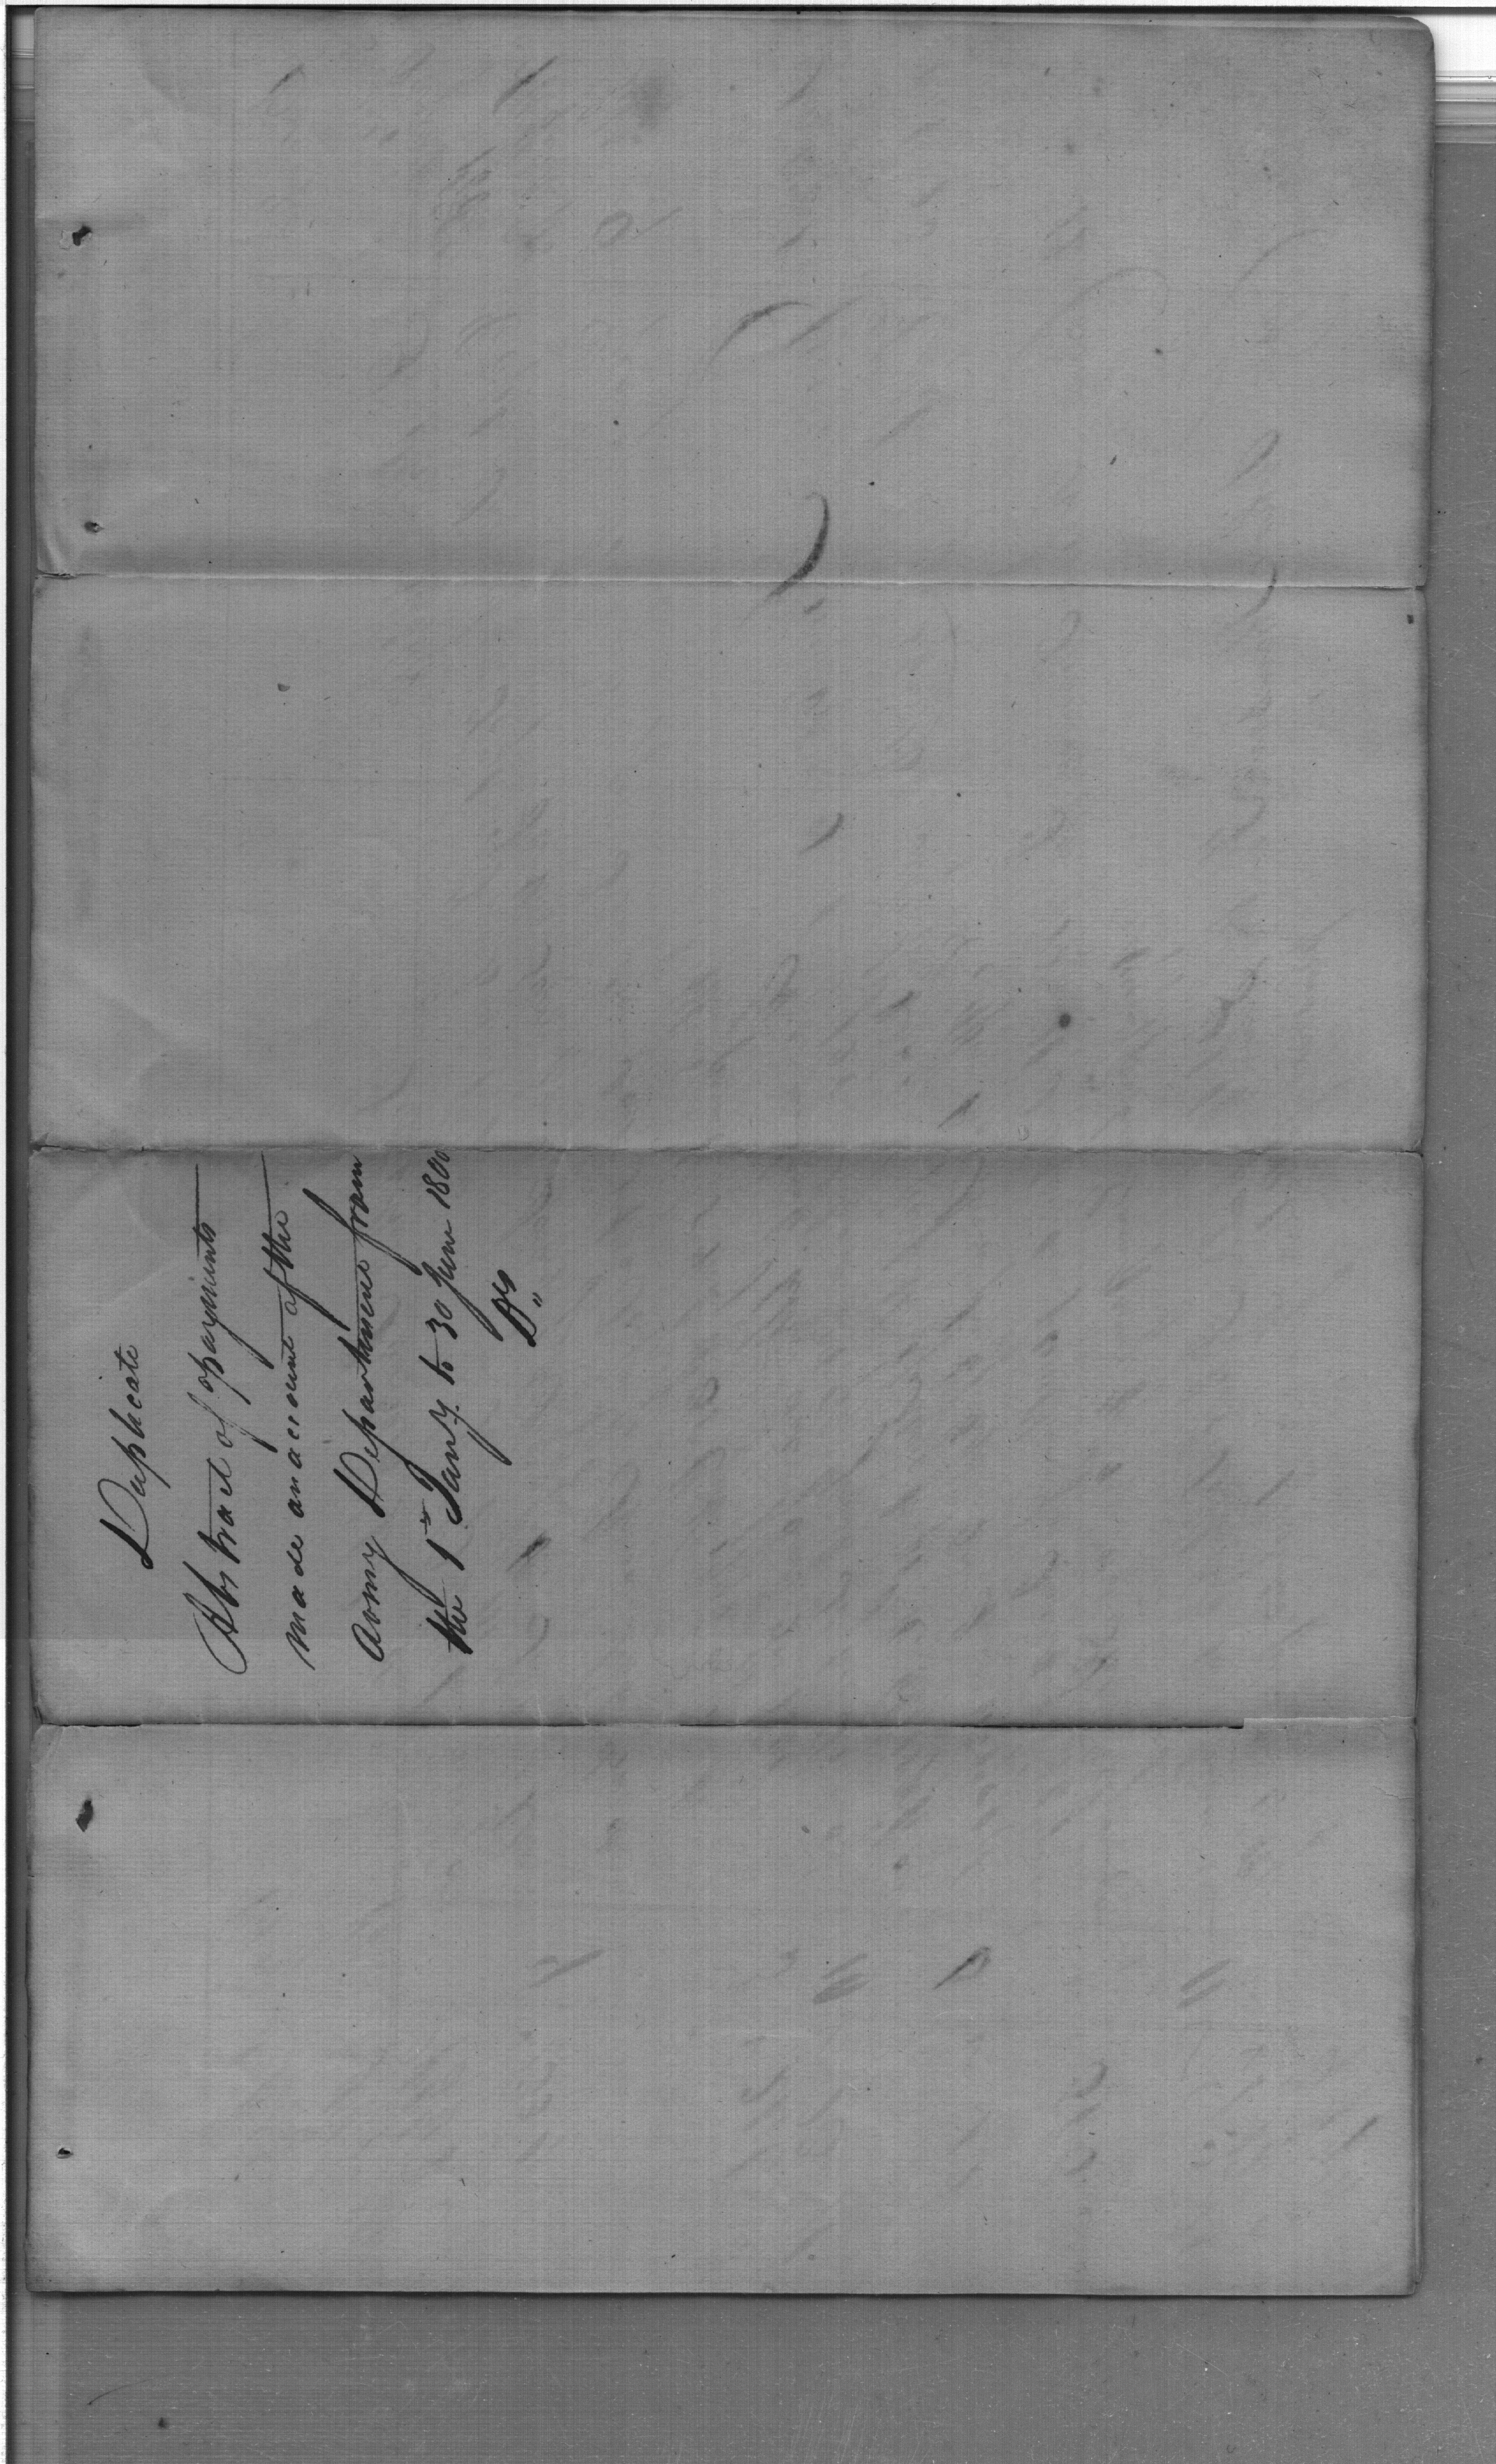 Duplicate
Abstract of payments
made on account of the
Army Department from
the 1st Jany. to 30 June 1800